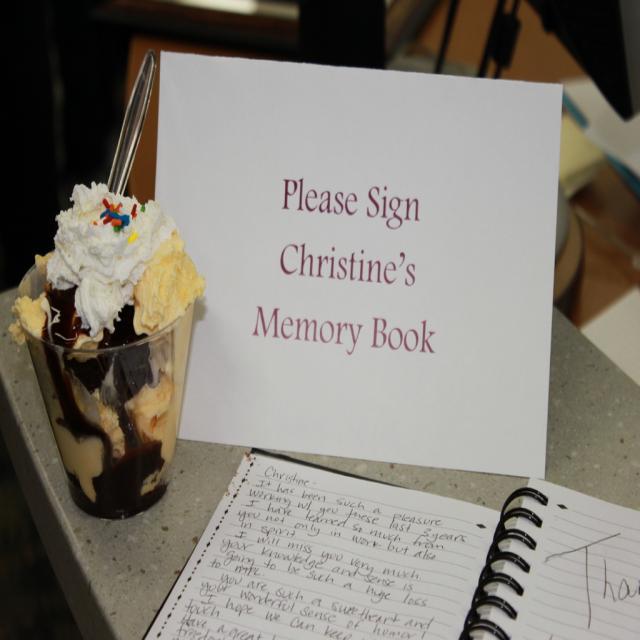 Please Sign
Christine's
Memory Book
Christine-
It has been such a pleasure
working w/ you these last 2 years
I've not only learned so much from
you in work but also
spirit
I will miss you very much
your knowledge and sense is
going to be such a huge loss
you are such a sweetheart and
have wonderful sense of humor!
hope we can keep
have a great
Than